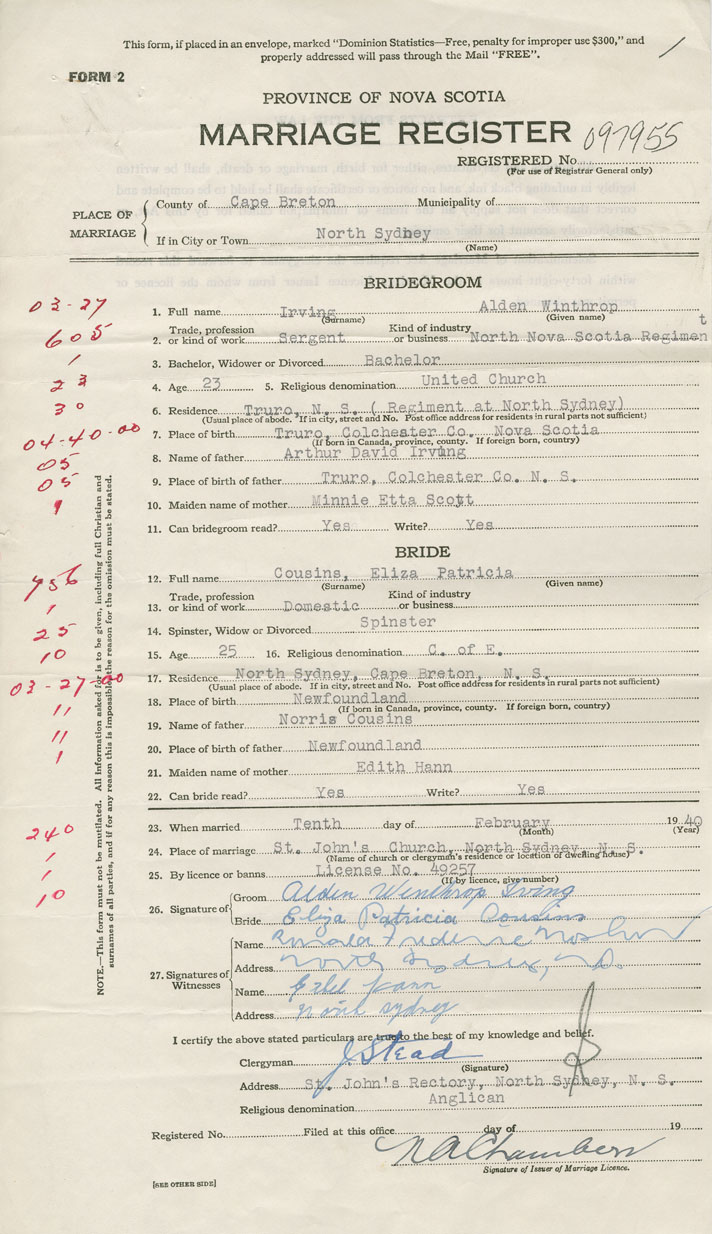 This form, if placed in an envelope, marked "Dominion Statistics—Free, penalty for improper use $300," and
properly addressed will pass through the Mail "FREE".
FORM 2
PROVINCE OF NOVA SCOTIA
MARRIAGE REGISTER 097955
REGISTERED No.
(For use of Registrar General only)
PLACE OF MARRIAGE
County of Cape Breton Municipality of
If in City or Town North Sydney
(Name)
BRIDEGROOM
03-27
1. Full name Irving Alden Winthrop
(Surname) (Given name)
605
2. Trade, profession or kind of work Sergent Kind of industry or business North Nova Scotia Regiment
1
3. Bachelor, Widower or Divorced Bachelor
23
4. Age 23 5. Religious denomination United Church
30
6. Residence Truro, N. S. ( Regiment at North Sydney)
(Usual place of abode. If in city, street and No. Post office address for residents in rural parts not sufficient)
04-40-00
7. Place of birth Truro, Colchester Co. Nova Scotia
(If born in Canada, province, county. If foreign born, country)
05
8. Name of father Arthur David Irving
05
9. Place of birth of father Truro, Colchester Co. N. S.
1
10. Maiden name of mother Minnie Etta Scott
11. Can bridegroom read? Yes Write? Yes
BRIDE
756
12. Full name Cousins, Eliza Patricia
(Surname) (Given name)
1
13. Trade, profession or kind of work Domestic Kind of industry or business
25
14. Spinster, Widow or Divorced Spinster
10
15. Age 25 16. Religious denomination C. of E.
03-27-00
17. Residence North Sydney, Cape Breton, N. S.
(Usual place of abode. If in city, street and No. Post office address for residents in rural parts not sufficient)
11
18. Place of birth Newfoundland
(If born in Canada, province, county. If foreign born, country)
11
19. Name of father Norris Cousins
1
20. Place of birth of father Newfoundland
21. Maiden name of mother Edith Hann
22. Can bride read? Yes Write? Yes
240
23. When married Tenth day of February 1940
(Month) (Year)
1
24. Place of marriage St. John's Church, North Sydney N. S.
(Name of church or clergyman's residence or location of dwelling house)
1
25. By licence or banns License No. 49257
(If by licence, give number)
10
26. Signature of
Groom Alden Winthrop Irving
Bride Eliza Patricia Cousins
27. Signatures of Witnesses
Name
Address North Sydney, N.S.
Name
Address North Sydney
NOTE.—This form must not be mutilated. All Information asked for is to be given, including full Christian and
surnames of all parties, and if for any reason this is impossible the reason for the omission must be stated.
I certify the above stated particulars are true to the best of my knowledge and belief.
Clergyman J. Stead
(Signature)
Address St. John's Rectory, North Sydney, N. S.
Religious denomination Anglican
Registered No. Filed at this office day of 19
N A Chambers
Signature of Issuer of Marriage Licence.
[SEE OTHER SIDE]